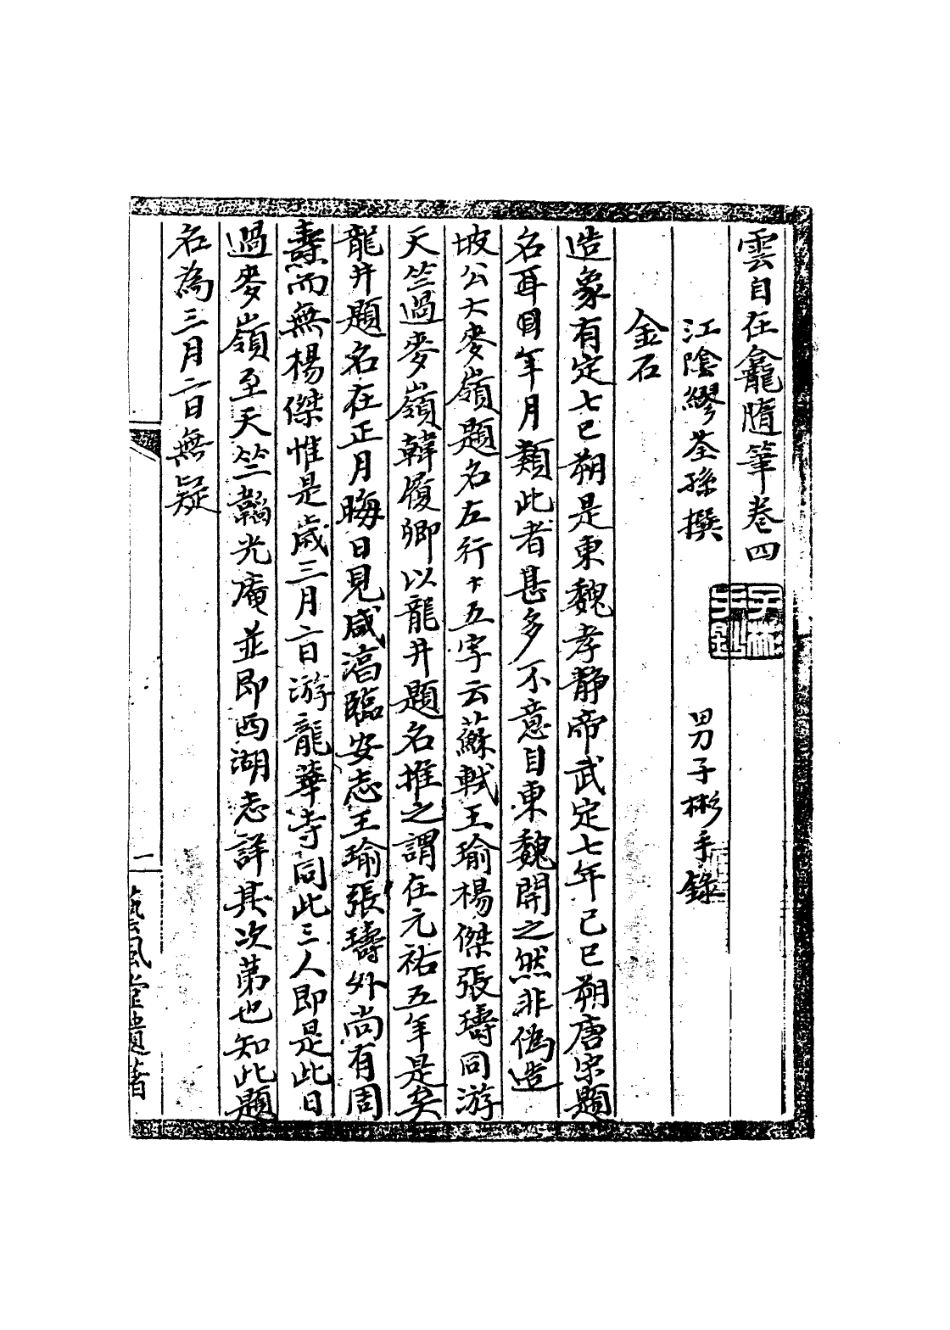 雲自在龕隨筆卷四
江陰繆荃孫撰 男子彬手錄
子彬手鈔
金石
造象有定七巳朔是東魏孝靜帝武定七年己巳朔唐宋題
名耳目年月類此者甚多不意自東魏開之然非偽造
坡公大麥嶺題名左行十五字云蘇軾王瑜楊傑張璹同游
天竺過麥嶺韓履卿以龍井題名推之謂在元祐五年是矣
龍井題名在正月晦日見咸淳臨安志王瑜張璹外尚有周
燾而無楊傑惟是歲三月二日游龍華寺同此三人即是此日
過麥嶺至天竺韜光庵並即西湖志詳其次第也知此題
名為三月二日無疑
二
藝風堂遺著